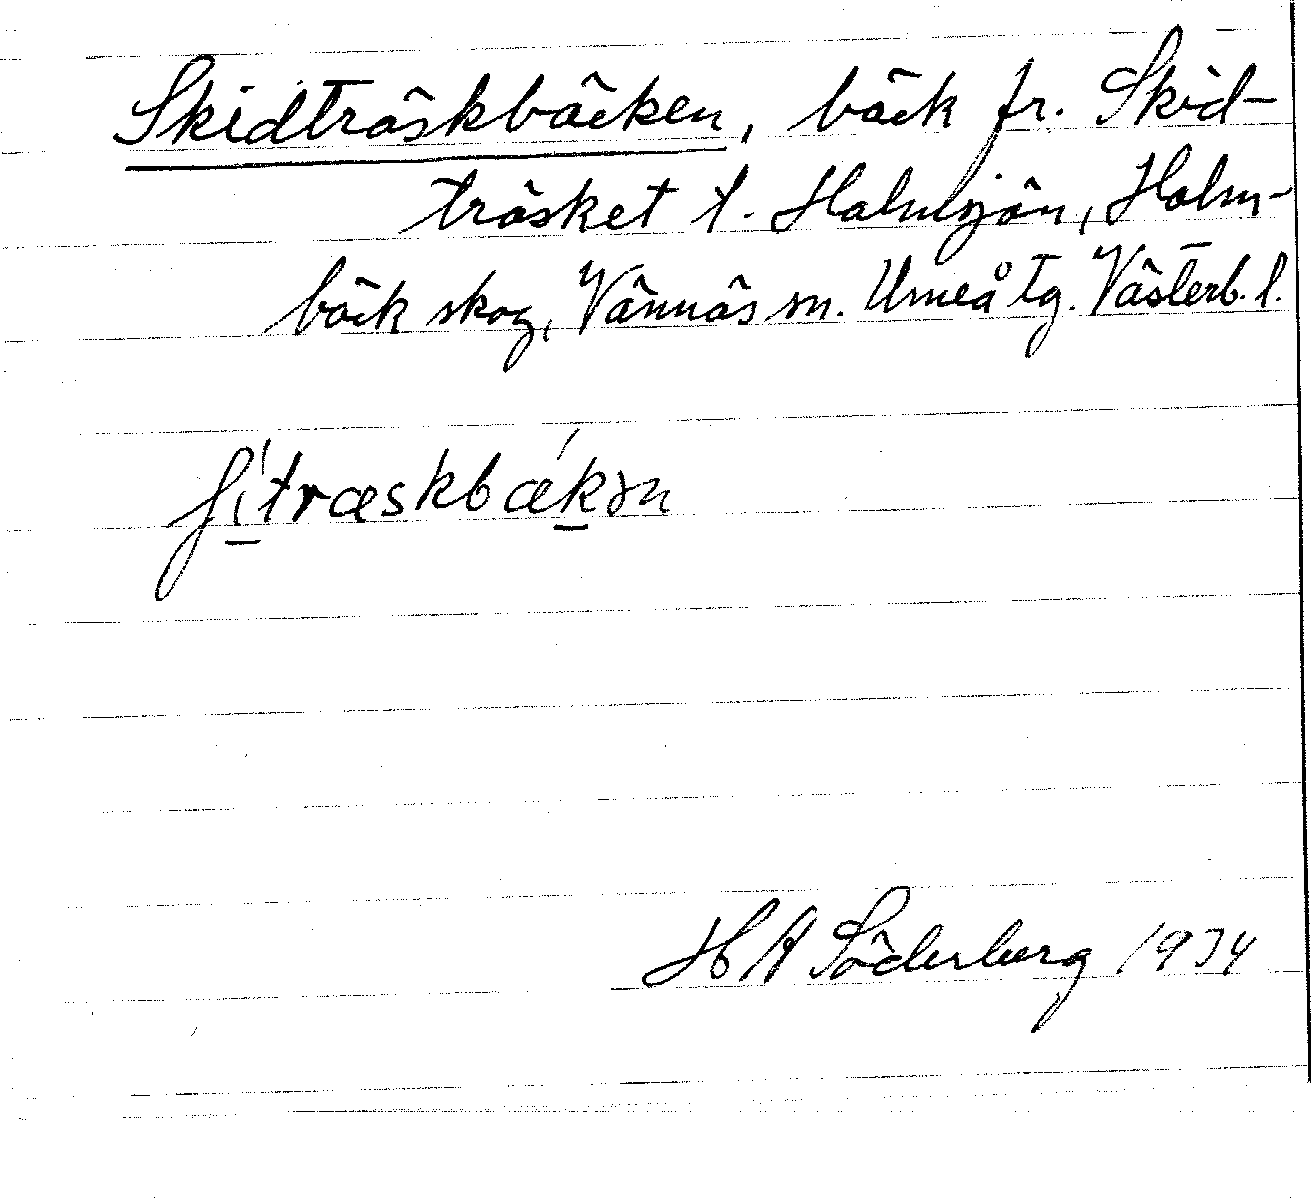 Skidträskbäcken, bäck fr. Skid-
träsket t. Holmsjön, Holm-
bäck skog, Vännäs sn. Umeå tg. Västerb. l.
ʃi̱ˈtræskbæ´ḵən
H A Söderberg 1934